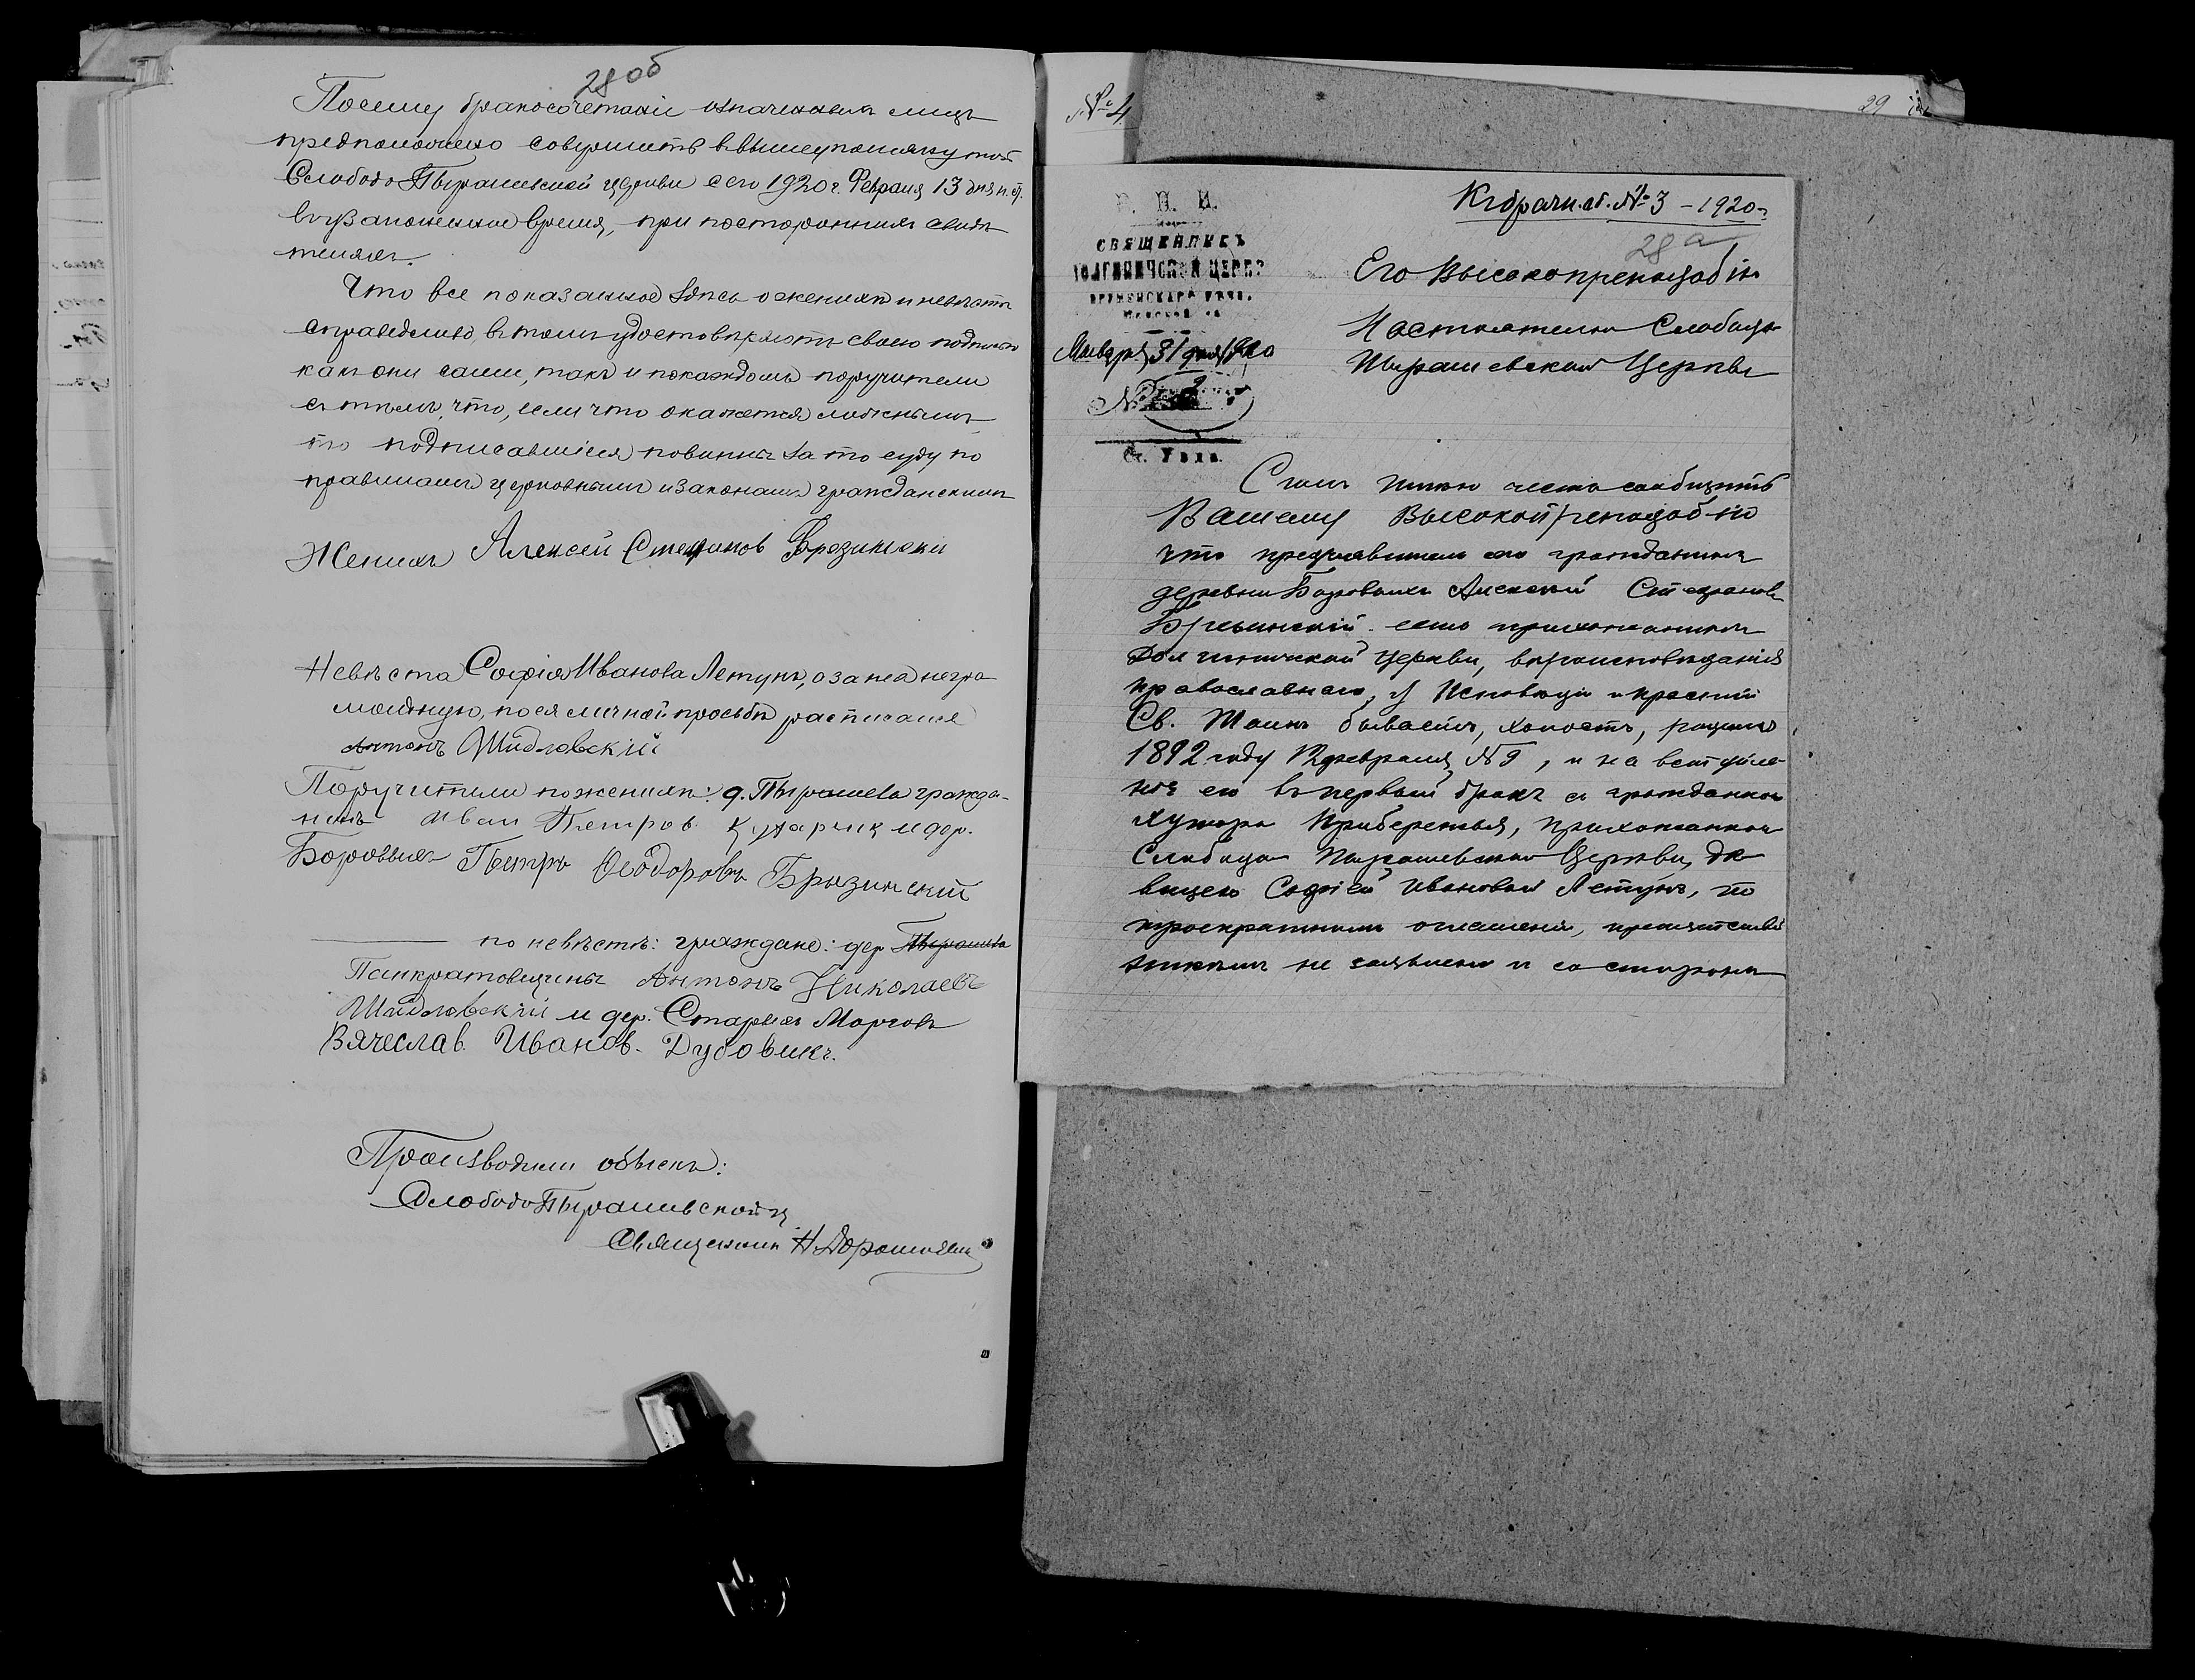 28 об
Посему бракосочетаніе означенныхъ лицъ
предположено совершить въ вышеупомянутой
Слободо Пырашевской церкви сего 1920 г. Февраля 13 дня н. ст.
въ узаконенное время, при постороннихъ свидѣ
теляхъ.
Что все показанное здѣсь о женихѣ и невѣстѣ
справедливо, въ томъ удостовѣряютъ своею подписью
какъ они сами, такъ и по каждомъ поручители
съ тѣмъ, что, если что окажется ложнымъ,
то подписавшіеся повинны за то суду по
правиламъ церковнымъ и законамъ гражданскимъ
Женихъ Алексей Стефанов Брезински
Невѣста Софія Иванова Летунъ, а за неа негра
мотную, по ея личной просьбѣ расписался
Антонъ Шидловскій
Поручители по женихѣ: д. Пырашева гражда-
нинъ Иван Петров Кухарчик и дер.
Боровыхъ Петръ Ѳеодоровъ Брызинский
по невѣстѣ: граждане: дер Пырашева
Панкратовщины Антонъ Николаевъ
Шидловскій и дер. Старыхъ Морговъ
Вячеслав. Иванов. Дубовикъ.
Производили обыскъ:
Слободо Пырашевской ц.
Священник Н. Дорошевич
№ 4
29
К брачн. об. № 3 - 1920 г.
28 а
СВЯЩЕННИКЪ
ДОЛГИНИЧСКОЙ ЦЕРКВ
ИГУМЕНСКАГО УѢЗД.
Минской
Января 31 дня 1920
№
Ст. Узда.
Его Высокопреподобію
Настоятелю Слободо
Пырашевской Церкви
Симъ имѣю честь сообщить
Вашему Высокопреподобію
что предъявитель сего гражданинъ
деревни Боровыхъ Алексей Стефановъ
Брезинскій есть прихожанинъ
Долгиничской Церкви, вѣроисповѣданія
православнаго, у Исповѣди и
Св. Таинъ бываетъ, холостъ, родился
1892 году февраля, № 9, и на вступле-
ніе его въ первый бракъ съ гражданкою
хутора Прибережья, прихожанкою
Слободо Пырашевской Церкви, дѣ
вицею Софіей Ивановой Летунъ, по
троекратномъ оглашеніи, препятствій
никѣмъ не заявлено и со стороны